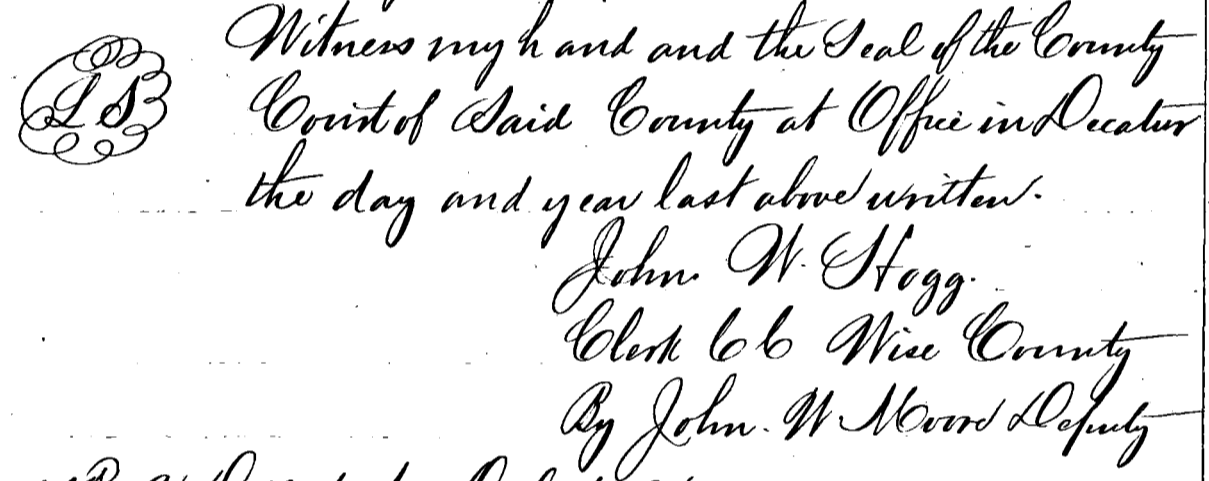 Witness my hand and the Seal of the County
L S
Court of Said County at Office in Decatur
the day and year last above written.
John. W. Hogg.
Clerk C C Wise County
By John. W Moore Deputy